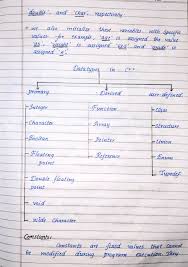 double and char respectively
• we also initialize these variables with specific
values for example, 'age' is assigned the value
is assigned and 'grade' is
assigned
Datatypes in C++
primary Derived user-defined
Integer Function Class
Character Array Structure
Boolean Pointer Union
Floating point Reference Enum
Double floating point Typedef
void
wide character
Constants:
Constants are fixed values that cannot
be modified during program execution. They